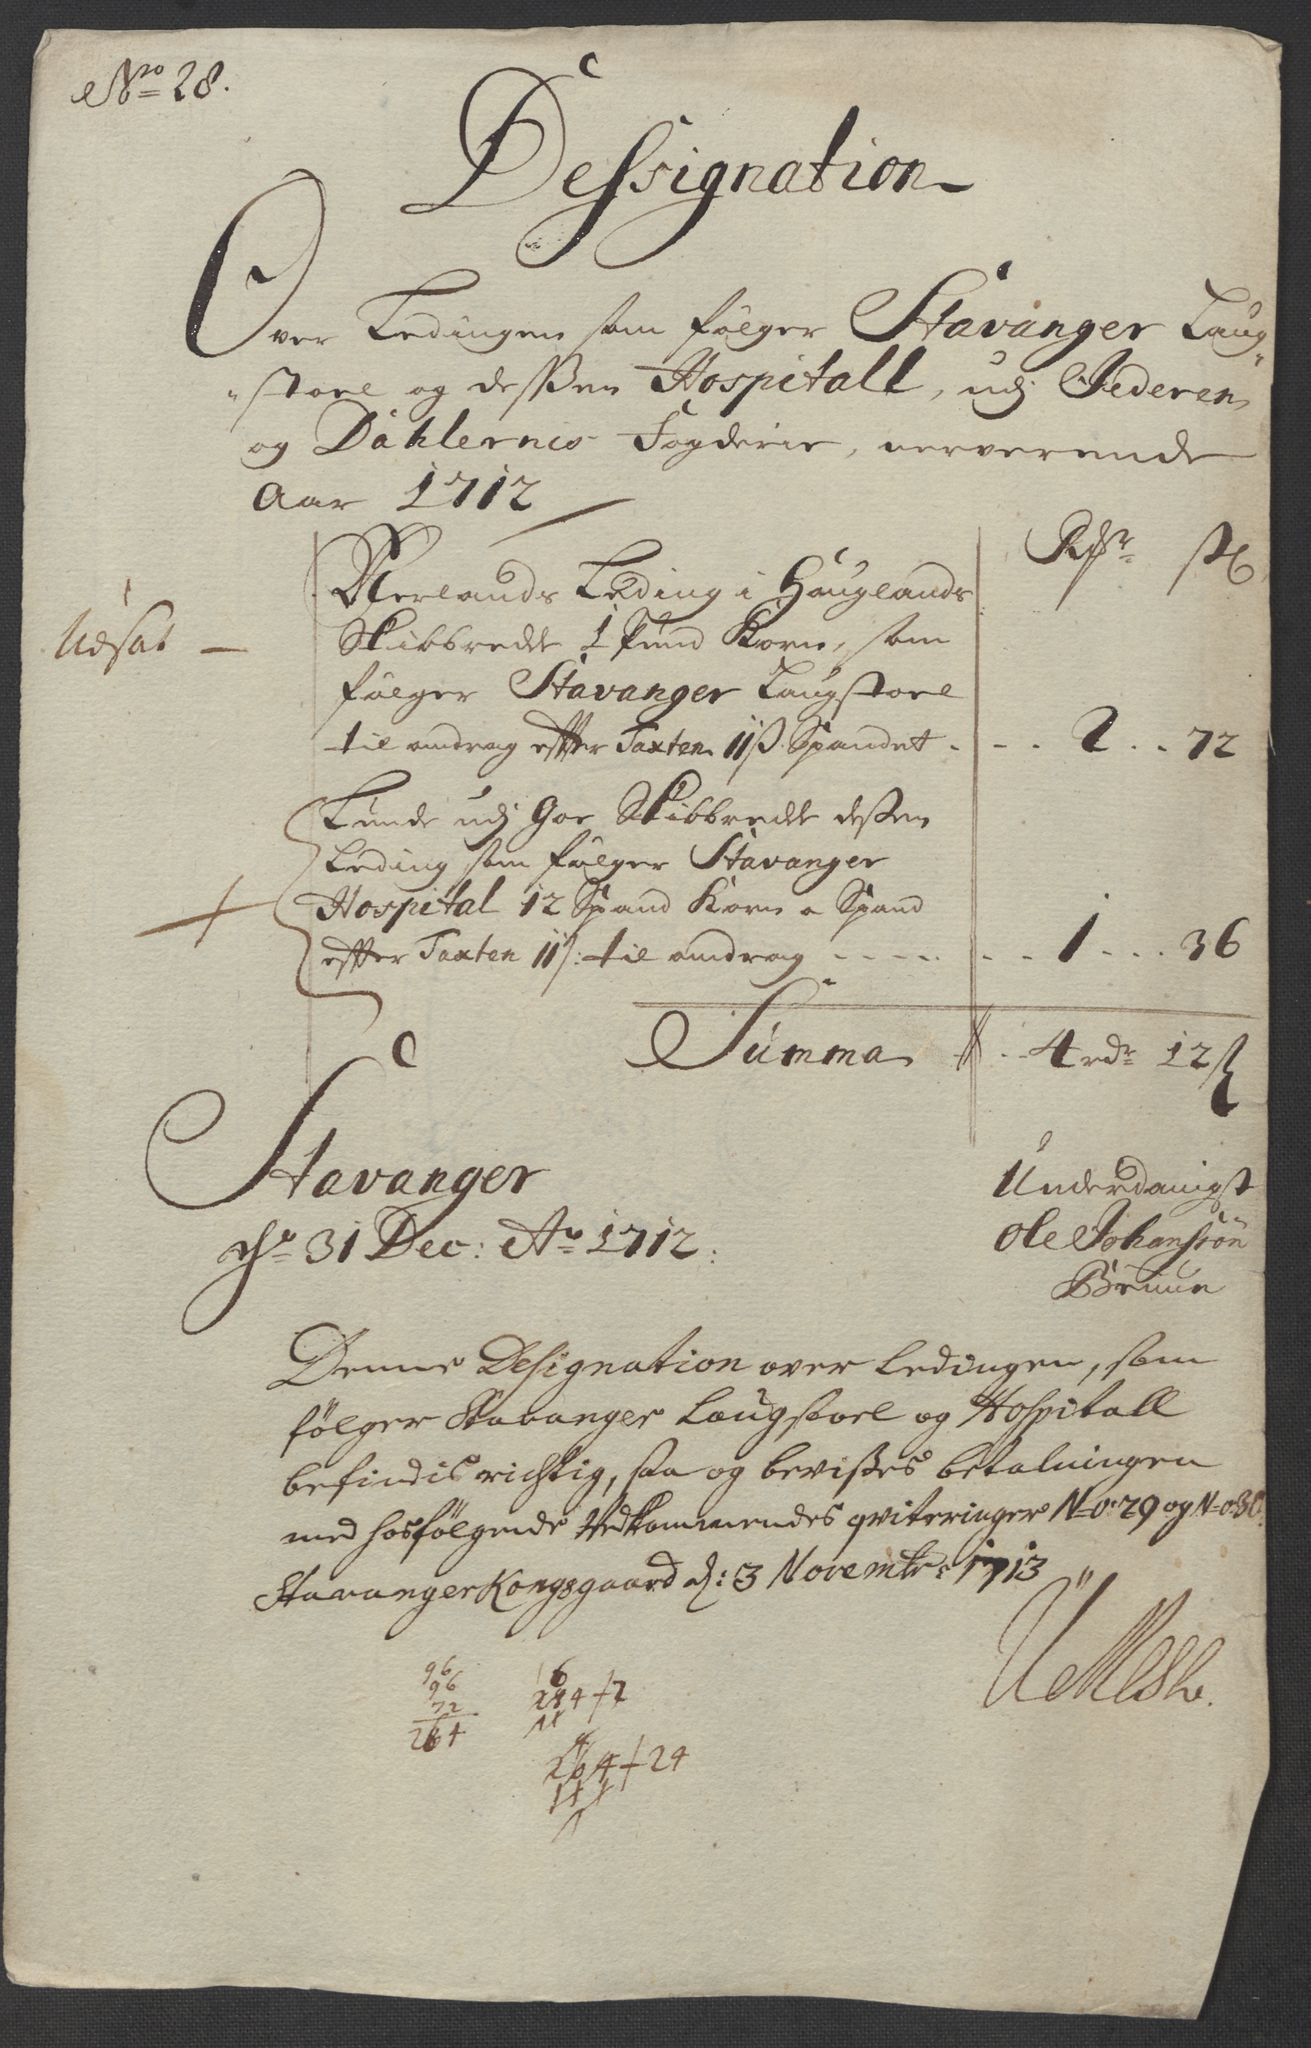 No 28.
Dessignation
Over Ledingen som følger Stavanger Laug„
„stoel og dessen Hospitall, udj Jederen
og Dahlernis Fogderie, nerverende
Aar 1712
Rdr ß
Nerlands Leding i Hauglands
Udsat —
Skibbrede 1 Pund Korn, som
følger Stavanger Laugstoel
til andrag effter Taxten 11ß Spandet . - - . 2 . . 72
Lunde udj Goe Skibbrede dessen
Leding som følger Stavanger
Hospital 12 Spand Korn a Spand
effter Taxten 11ß: til andrag - - - - - - . 1 . . . 36
Summa . . 4 rdr 12ß
Stavanger
Underdanigst
dn 31 Dec: Ao 1712:
Ole Johanssön
Bruun
Denne Designation over Ledingen, som
følger Stavanger Laugstoel og Hospitall
befindis richtig, saa og bevisses betalningen
med hosfölgende Vedkommendes qviteringer No: 29 og No 30.
Stavanger Kongsgaard d: 3 Novembr: 1713
96
96
72
264
264 + 24